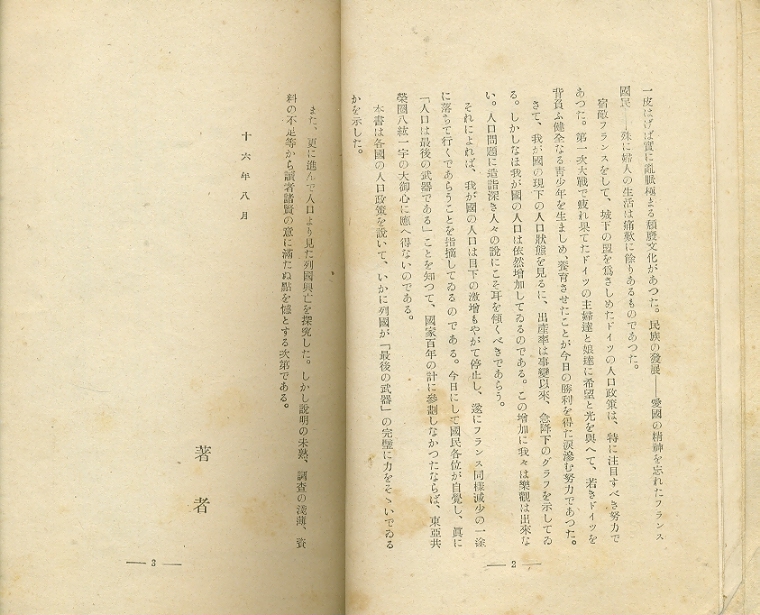 一皮はげば實に亂脈極まる頽廢文化があつた。民族の發展――愛國の精神を忘れたフランス
國民――殊に婦人の生活は痛歎に餘りあるものであつた。
宿敵フランスをして、城下の盟を爲さしめたドイツの人口政策は、特に注目すべき努力で
あつた。第一次大戰で疲れ果てたドイツの主婦達と娘達に希望と光を與へて、若きドイツを
背負ふ健全なる青少年を生ましめ、養育させたことが今日の勝利を得た涙滲む努力であつた。
さて、我が國の現下の人口狀態を見るに、出産率は事變以來、急降下のグラフを示してゐ
る。しかしなほ我が國の人口は依然增加してゐるのである。この增加に我々は樂觀は出來な
い。人口問題に造詣深き人々の說にこそ耳を傾くべきであらう。
それによれば、我が國の人口は目下の激增もやがて停止し、遂にフランス同樣減少の一途
に落ちて行くであらうことを指摘してゐるのである。今日にして國民各位が自覺し、眞に
「人口は最後の武器である」ことを知つて、國家百年の計に參劃しなかつたならば、東亞共
榮圈八紘一宇の大御心に應へ得ないのである。
本書は各國の人口政策を說いて、いかに列國が「最後の武器」の完璧に力をそゝいでゐる
かを示した。
― 2 ―
また、更に進んで人口より見た列國興亡を探究した。しかし說明の未熟、調査の淺薄、資
料の不足等から讀者諸賢の意に滿たぬ點を憾とする次第である。
十六年八月
著者
― 3 ―